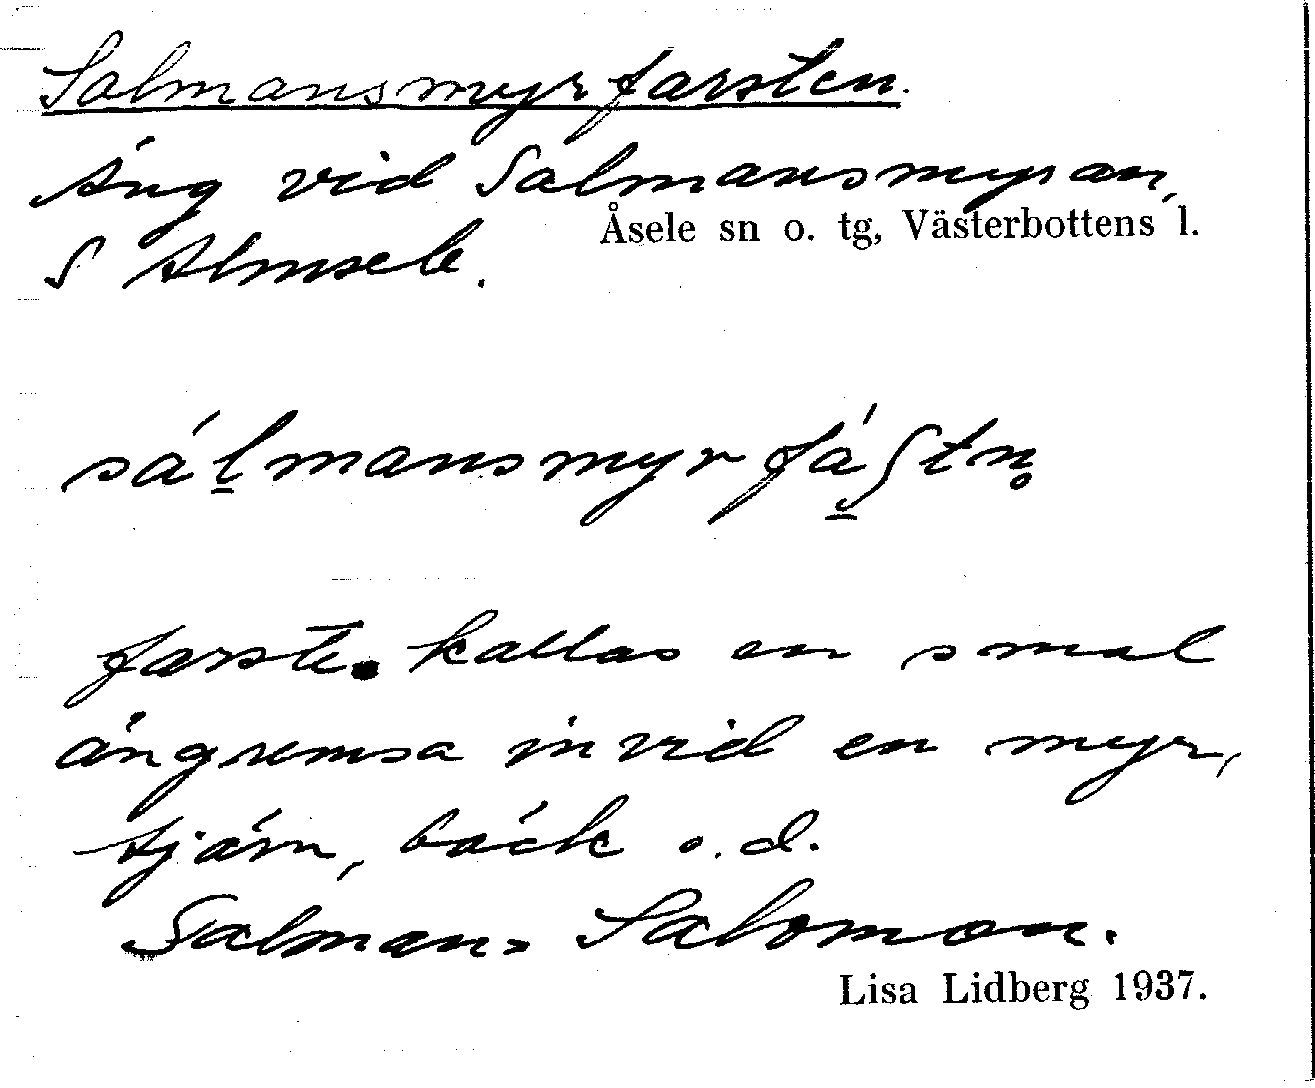 Salmansmyrfarsten.
Äng vid Salmansmyran,
Åsele sn o. tg, Västerbottens l.
S Almsele.
sál̲mansmyrfá̲ʃtn̥
farste. kallas en smal
ängremsa invid en myr,
tjärn, bäck o.d.
Salman = Salomon.
Lisa Lidberg 1937.